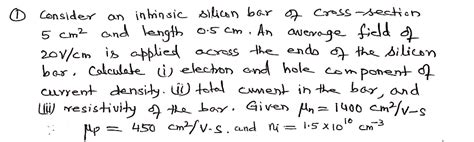 ① Consider an intrinsic silicon bar of cross-section
5 cm² and length 0.5 cm. An average field of
20V/cm is applied across the ends of the silicon
bar. Calculate (i) electron and hole component of
current density. (ii) total current in the bar, and
(iii) resistivity of the bar. Given μn = 1400 cm²/v-s
μp = 450 cm²/v.s. and ni = 1.5 x 10¹⁰ cm⁻³